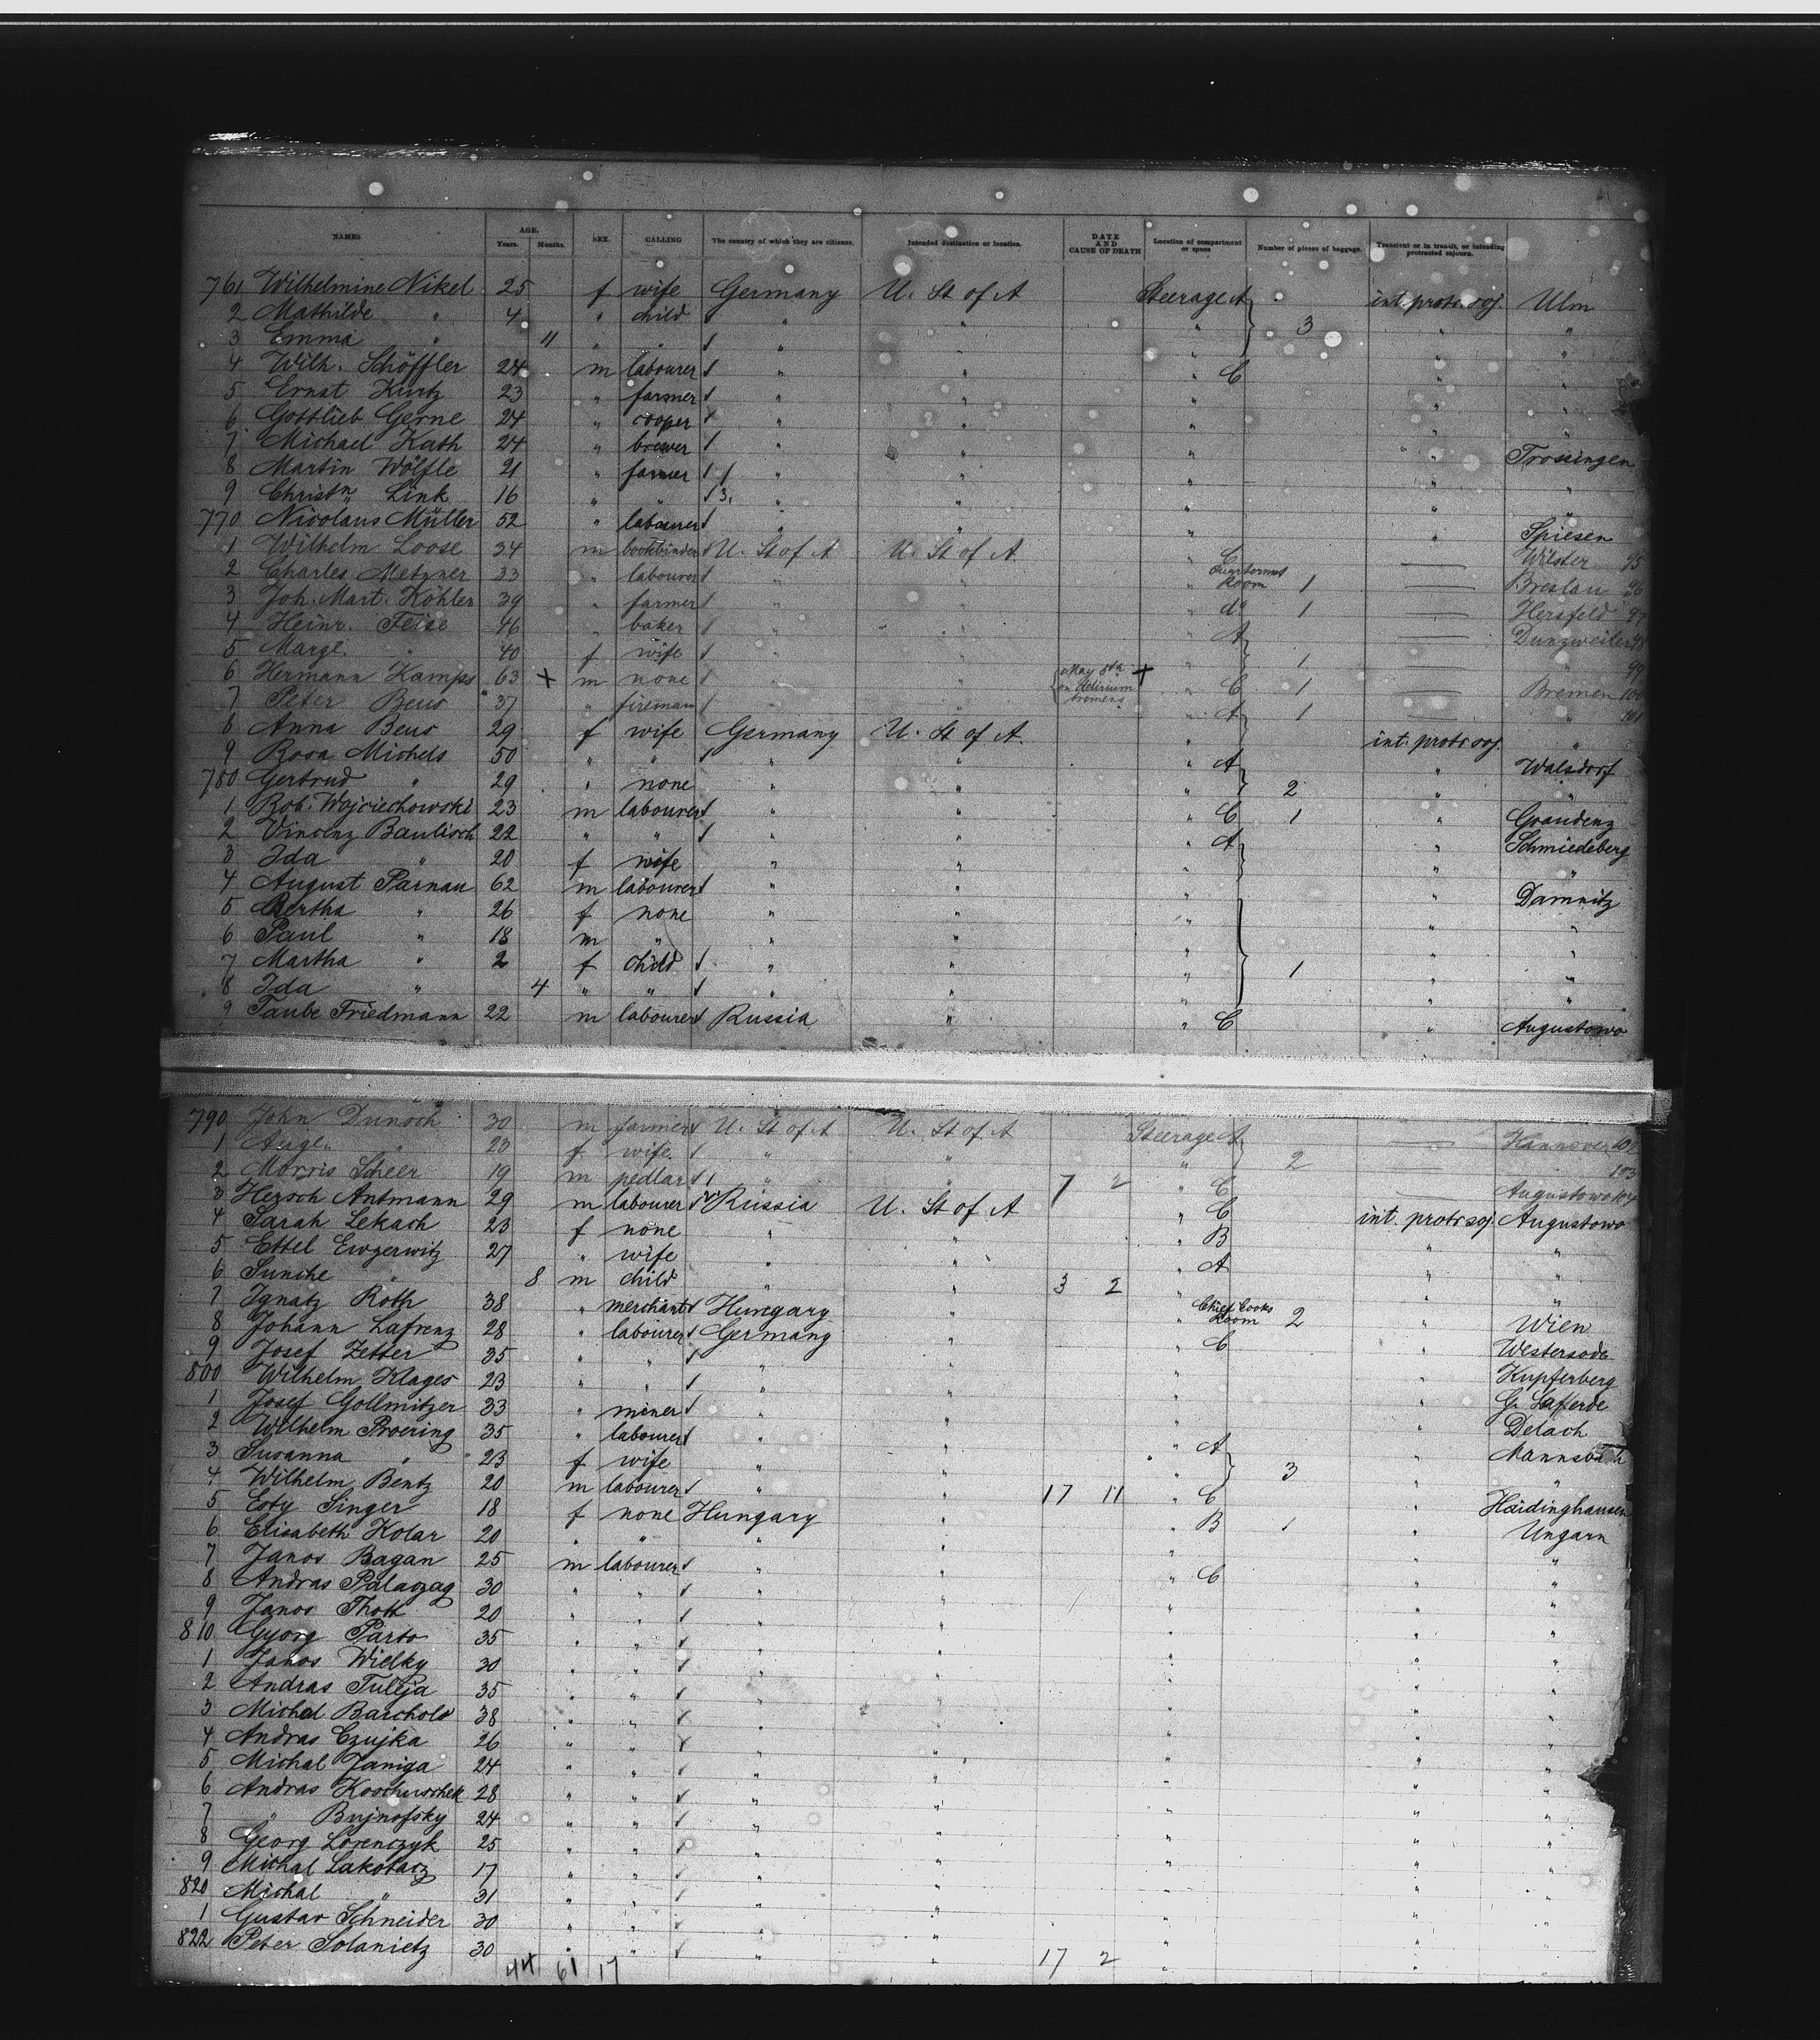 NAMES AGE. Years. Months. SEX. CALLING The country of which they are citizens. Intended destination or location. DATE AND CAUSE OF DEATH Location of compartment or space Number of pieces of baggage. Transient or in transit, or intending protracted sojourn.
761 Wilhelmine Nikel 25 f wife Germany U. St of A Steerage A int. protr. soj. Ulm
2 Mathilde " 4 " child " " " 3 " "
3 Emma " 11 " " " " " " "
4 Wilh. Schöffler 24 m labourer " " " C " "
5 Ernst Kurtz 23 " farmer " " " " "
6 Gottlieb Gerne 24 " cooper " " " " "
7 Michael Kath 24 " brewer " " " " Trossingen
8 Martin Wölfle 21 " farmer " " " " "
9 Christn Link 16 " " " " " " "
770 Nicolaus Müller 52 " labourer " " " " Spiesen
1 Wilhelm Loose 34 m bookbinder U. St of A U. St of A. " C — Wilster 95
2 Charles Metzner 33 " labourer " " " Room 1 — Breslau 96
3 Joh. Mart. Köhler 39 " farmer " " " do 1 — Hersfeld 97
4 Heinr. Feise 46 " baker " " " A — Dunzweiler 98
5 Marge. " 40 f wife " " " 1 — " 99
6 Hermann Kamps 63 + m none " " May 8th on delirium tremens + " C 1 — Bremen 100
7 Peter Beus 37 " fireman " " " A 1 — " 101
8 Anna Beus 29 f wife Germany U. St of A. " int. protr soj. "
9 Rosa Michels 50 " " " " " A " Walsdorf
780 Gertrud " 29 " none " " " 2 " "
1 Rob. Wojciechowski 23 m labourer " " " C 1 " Graudenz
2 Vincenz Baulisch 22 " " " " " A " Schmiedeberg
3 Ida " 20 f wife " " " " "
4 August Parnau 62 m labourer " " " " Damnitz
5 Bertha " 26 f none " " " " "
6 Paul " 18 m " " " " " "
7 Martha " 2 f child " " " 1 " "
8 Ida " 4 " " " " " " "
9 Taube Friedmann 22 m labourer Russia " " C " Augustowo
790 John Dunoch 30 m farmer U. St of A U. St of A Steerage A — Hannover 102
1 Auge. " 23 f wife " " " 2 103
2 Morris Scheer 19 m pedlar " " 7 2 " C — Augustowo 104
3 Hersch Antmann 29 m labourer Russia U. St of A " C int. protr soj. Augustowo
4 Sarah Lekach 23 f none " " " B " "
5 Ettel Ewzerwitz 27 " wife " " " A " "
6 Sunche " 8 m child " " 3 2 " " "
7 Ignatz Roth 38 " merchant Hungary " " Chief Cooks Room 2 " Wien
8 Johann Lafrenz 28 " labourer Germany " " C " Westersode
9 Josef Zetter 35 " " " " " " Kupferberg
800 Wilhelm Klages 23 " " " " " " G. Lafferde
1 Josef Gollmitzer 33 " miner " " " " Delach
2 Wilhelm Proering 35 " labourer " " " A " Mannsbach
3 Susanna " 23 f wife " " " 3 " "
4 Wilhelm Bentz 20 m labourer " " 17 11 " C " Haidinghausen
5 Esty Singer 18 f none Hungary " " B 1 " Ungarn
6 Elisabeth Kolar 20 " " " " " " "
7 Janos Bagan 25 m labourer " " " C " "
8 Andras Palaczag 30 " " " " " " "
9 Janos Thott 20 " " " " " " "
810 Gyorg Parto 35 " " " " " " "
1 Janos Wielky 30 " " " " " " "
2 Andras Tuleja 35 " " " " " " "
3 Michal Barchold 38 " " " " " " "
4 Andras Czujka 26 " " " " " " "
5 Michal Janiga 24 " " " " " " "
6 Andras Koschuschek 28 " " " " " " "
7 " Bujnofsky 24 " " " " " " "
8 Georg Lorenczyk 25 " " " " " " "
9 Michal Lakotacz 17 " " " " " " "
820 Michal " 31 " " " " " " "
1 Gustav Schneider 30 " " " " " " "
822 Peter Solanietz 30 " " " " 17 2 " " "
44 61 17